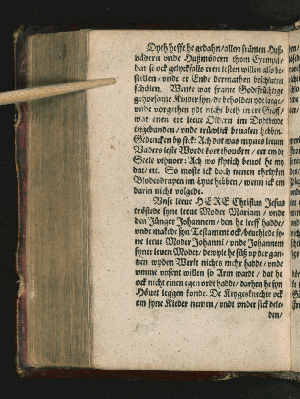 Dyth hefft he gedahn / allen framen Huß-
vedern vnde Hußmödern thom Exempel /
dat se ock gelyckfalls eren lesten willen also be-
stellen / vnde er Ende dermathen beschluten
schölen. Wente wat frame Godtfrüchtige
gehorsame Kinder syn / de beholden ydt lange /
vnde vorgethen ydt nicht beth in ere Graff /
wat enen ere leue Oldern im Dodtbedde
ingebunden / vnde trüwlick beualen hebben.
Gedencken by sick: Ach dat was mynes leuen
Vaders leste Wordt kort thouörn / eer em de
Seele vthuoer: Ach wo flytich beuol he my
dat / etc. So moste ick doch nenen ehrlyken
Blodesdrapen im Lyue hebben / wenn ick em
darin nicht volgede.
Vnse leue HERE Christus Jesus
tröstede syne leue Moder Mariam / vnde
den Jünger Johannen / den he leeff hadde /
vnde makede syn Testament ock / beuehlede sy-
ne leue Moder Johanni / vnde Johannem
syner leuen Moder / dewyle he sülft vp der gan-
tzen wyden Werlt nichts mehr hadde / vnde
vmme vnsent willen so Arm wardt / dat he
ock nicht einen egen ordt hadde / darhen he syn
Höuet leggen konde. De Krygesknechte ock
em syne Kleder nemen / vnde vnder sick dele-
den /